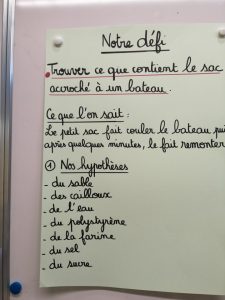 Notre défi
Trouver ce que contient le sac
acroché à un bateau.
Ce que l'on sait :
Le petit sac fait couler le bateau pui
après quelques minutes, le fait remonter
① Nos hypothèses
- du sable
- des cailloux
- de l'eau
- du polystyrène
- de la farine
- du sel
- du sucre